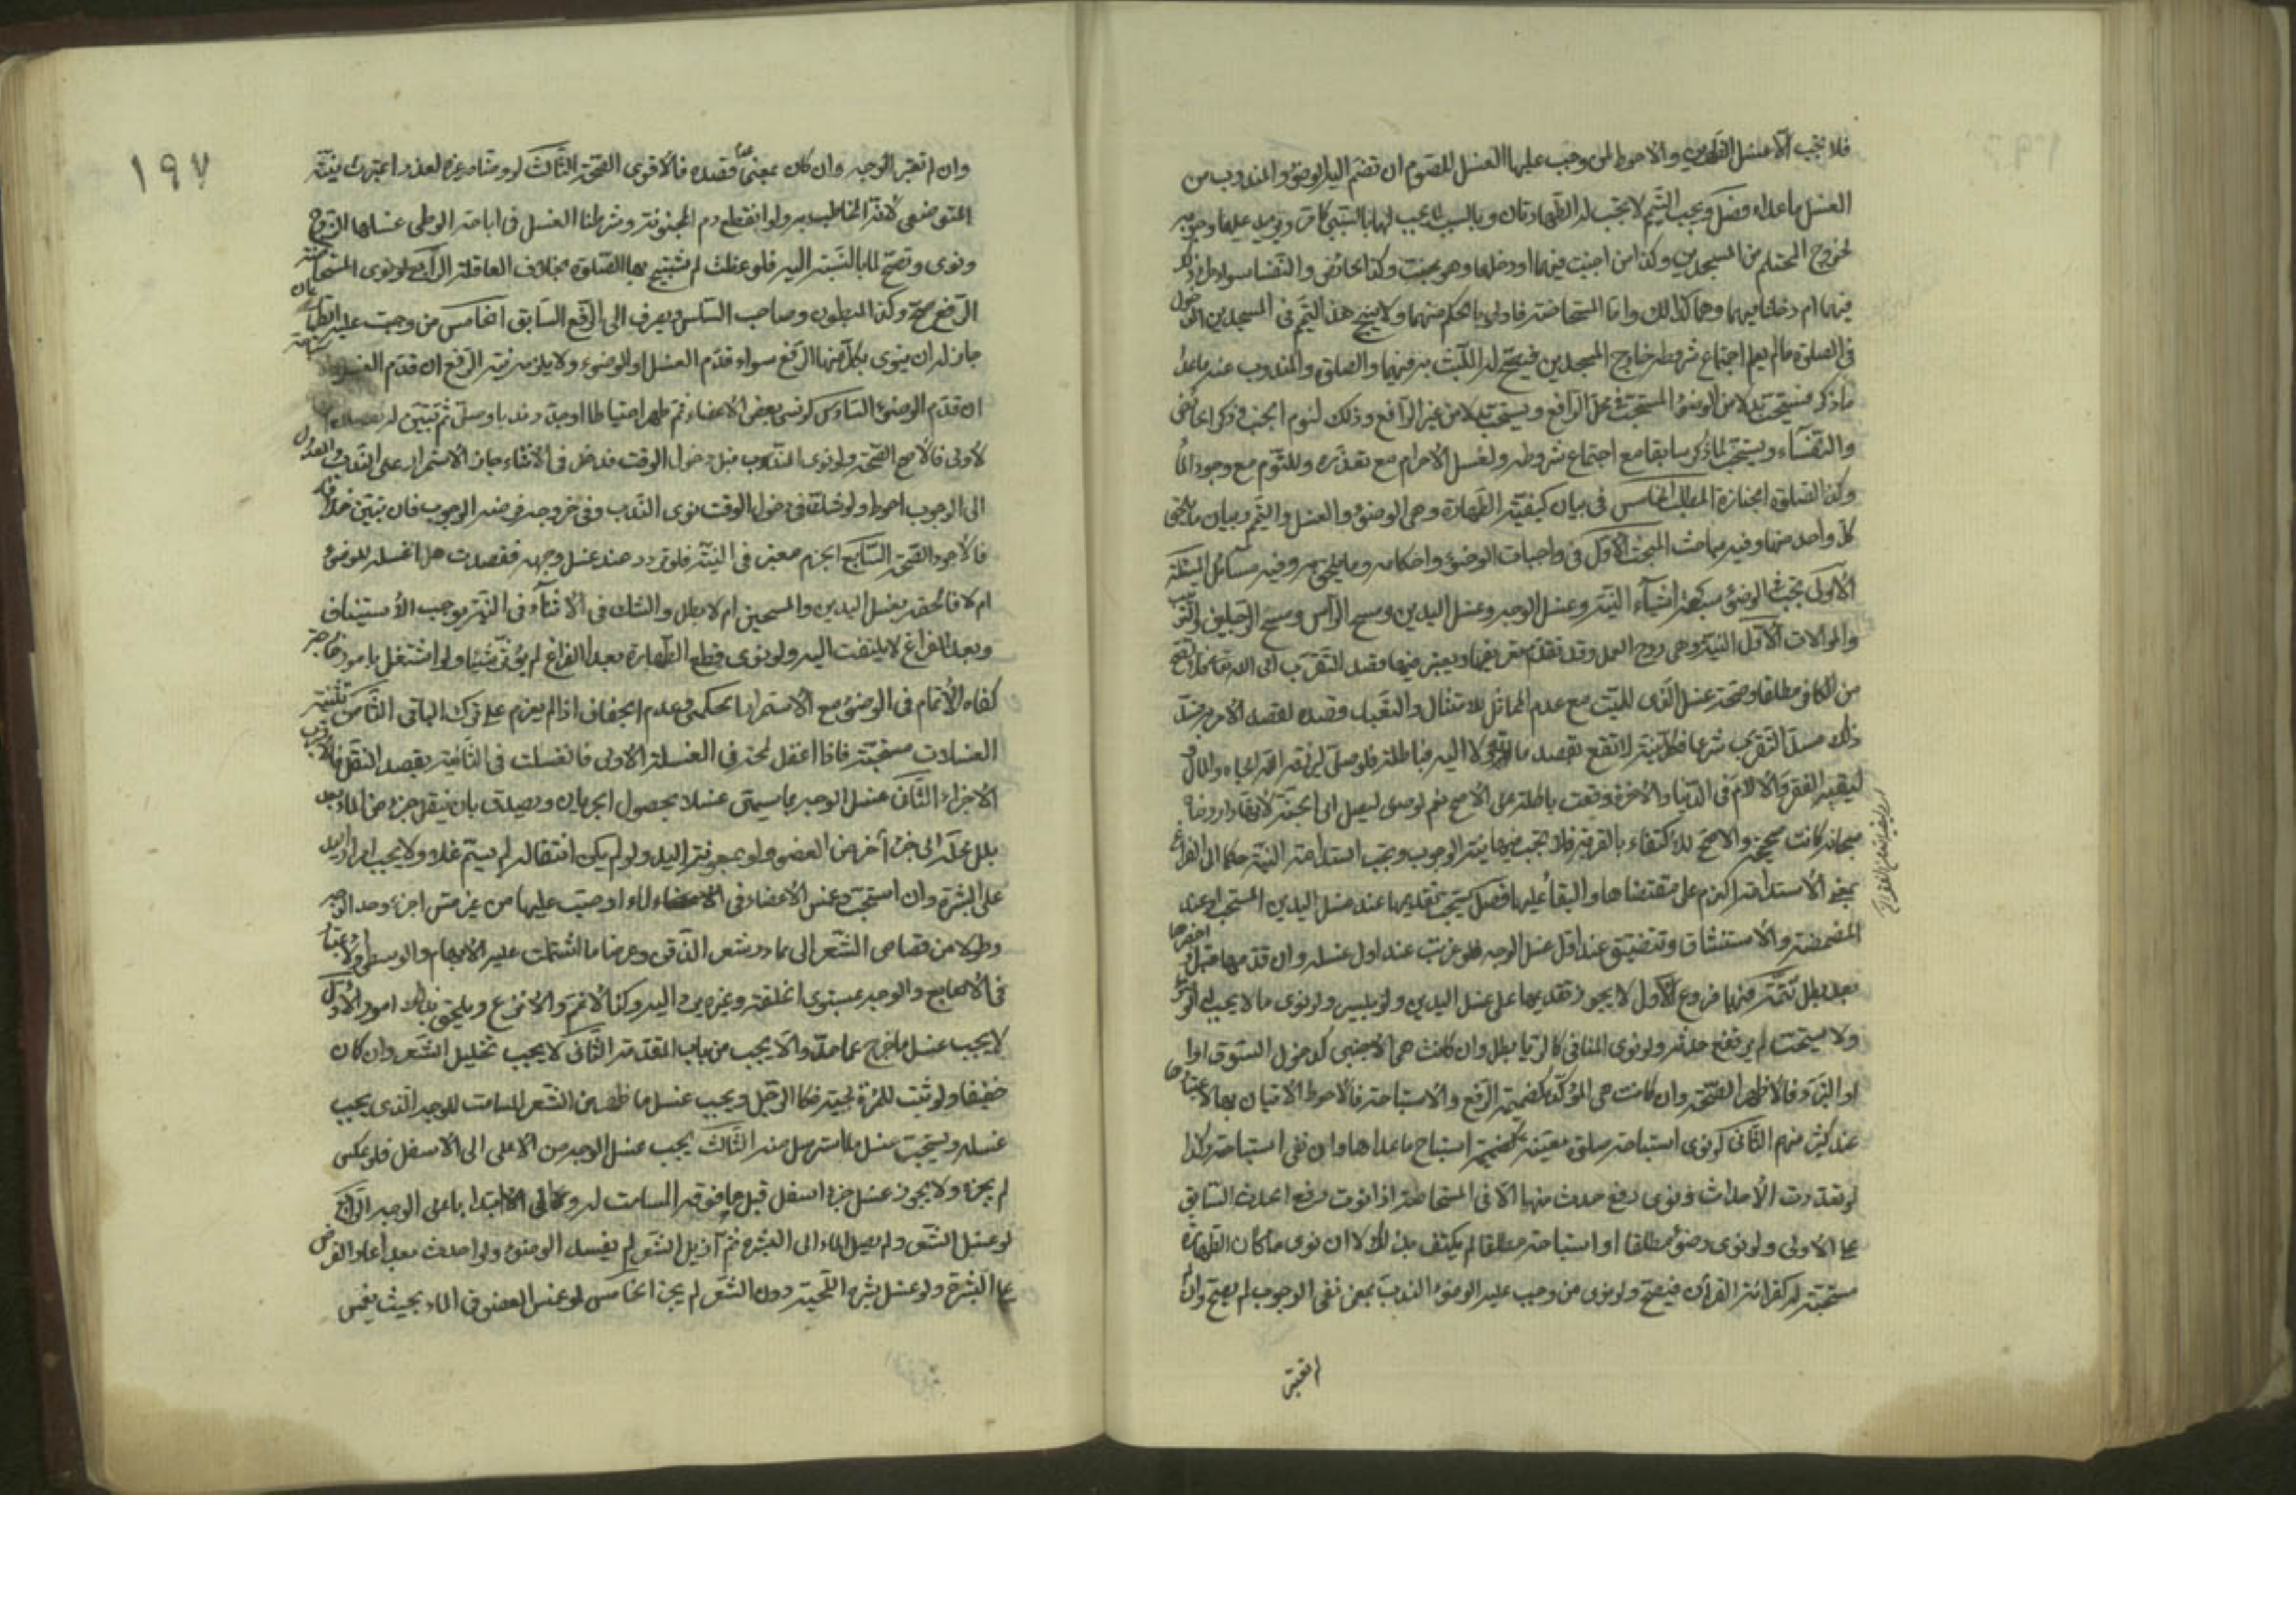 فلا يجب الا غسل الفرجين والاحوط لمن وجب عليها الغسل للصوم ان تضم اليه الوضوء والمندوب من
الغسل ما عداه فصل ويجب التيمم لا يجب له الطهارتان وبالسبب يجب لهما بالتبعي كما مر ويزيد عليهما وجوبه
لخروج المحتلم من المسجدين وكذا من اجنب فيهما او دخلهما وهو جنب وكذا الحائض والنفسا سواء
فيهما ام دخلتا فيهما وهما كذلك واما المستحاضة فاولى بالحكم منهما ولا يبيح هذا التيمم في المسجدين
في الصلوة ما لم يعم اجتماع شروطه خارج المسجدين فيبيح له اللبث به فيهما والصلوة والمندوب منه ما عدا
ما ذكر فيستحب بدلا من الوضوء المستحب في محل الرافع ويستحب بدلا من غير الرافع وذلك لنوم الجنب وذكر الحائض
والنفساء ويستحب لما ذكر سابقا مع اجتماع شروطه ولغسل الاحرام مع تعذره وللنوم مع وجود الماء
وكذا الصلوة الجنازة المطلب الخامس في بيان كيفية الطهارة وهي الوضوء والغسل والتيمم وبيان ما
كل واحد منها وفيه مباحث المبحث الاول في واجبات الوضوء واحكامه وما يلحق به وفيه مسائل المسئلة
الاولى يجب في الوضوء سبعة اشياء النية وغسل الوجه وغسل اليدين ومسح الراس ومسح الرجلين والترتيب
والموالات الاول النية وهي روح العمل وقد تقدم تعريفها ويعتبر فيها قصد التقرب الى الله تعالى فلا تقع
من الكافر مطلقا وصحة غسل الذمي للميت مع عدم المماثل للامتثال والتعبد
ذلك مسل التقرب شرعا فكل نية لا تقع بقصد ما اليه فباطلة فلو صلى ليرزقه الله الجاه والمال
ليقيه الفقر والالام في الدنيا والاخرة وقعت باطلة على الاصح نعم لو صلى ليصل الى الجنة لانها دار رضاه
سبحانه كانت صحيحة والاصح للاكتفاء بالقربة فلا تجب فيها نية الوجوب ويجب استدامة النية حكما الى الفراغ
بمعنى الاستدامة العزم على مقتضاها والبقاء عليها فصل يستحب تقديمها عند غسل اليدين المستحب او عند
المضمضة والاستنشاق وتتضيق عند اول غسل الوجه فلو عزبت عند اول غسله وان قدمها قبل او اخرها
بعد بطل تتمة فيها فروع الاول لا يجوز تقديمها على غسل اليدين ولو بيسير ولو نوى ما لا يجب له الوضوء
ولا يستحب لم يرتفع حدثه ولو نوى المنافي كالريا بطل وان كانت هي الاجنبي كدخول السوق
او التبرد فالاظهر الصحة وان كانت هي المؤكدة كضميمة الرفع والاستباحة فالاحوط الاتيان بها لاعتبارها
عند كثير منهم الثاني لو نوى استباحة صلوة معينة كضميمة استباح ما عداها وان نفى استباحته وكذا
لو تعددت الاحداث ونوى رفع حدث منها الا في المستحاضة اذا نوت رفع الحدث السابق
على الاولى ولو نوى وضوء مطلقا او استباحة مطلقا لم يكتف بذلك الا ان نوى ما كان الطهارة
مستحبة له كقرائة القرآن فيصح ولو نوى من وجب عليه الوضوء الندب بمعنى نفي الوجوب لم يصح وان
لم تعتبر
١٩٧
وان لم تعتبر الوجه وان كان بمعنى قصده فالاقوى الصحة الثالث لو وضاه غيره لعذر اعتبرت نية
المتوضي لانه المخاطب به ولو انقطع دم المجنونة وشرطنا الغسل في اباحة الوطي غسلها الزوج
ونوى وتصح لها بالنسبة اليه فلو عقلت لم تستبح بها الصلوة بخلاف العاقلة الرابع لو نوى المستحاضة
الرفع صح وكذا المبطون وصاحب السلس ويصرف الى الرفع السابق الخامس من وجبت عليه الطهارتان
جاز له ان ينوي بكل منهما الرفع سواء قدم الغسل او الوضوء ولا يلزمه نية الرفع ان قدم الغسل
ان قدم الوضوء السادس لو نسي بعض الاعضاء ثم طهر احتياطا او جدد ندبا وصلى ثم تبين له
الاولى فالاصح الصحة ولو نوى المندوب قبل دخول الوقت فدخل في الاثناء جاز الاستمرار على الندب والعدول
الى الوجوب احوط ولو شك في دخول الوقت نوى الندب وفي خروجه فرضه الوجوب فان تبين خلافه
فالاجود الصحة السابع الجزم معتبر في النية فلو تردد عند غسل وجهه فقصدت هل اغسله للوضوء
ام لا فالحقه بغسل اليدين والمسحين ام لا بطل والشك في الاثناء في النية يوجب الاستيناف
وبعد الفراغ لا يلتفت اليه ولو نوى قطع الطهارة بعد الفراغ لم يؤثر شيئا ولو اشتغل بامور خارجة
كفاه الاتمام في الوضوء مع الاستمرار الحكمي وعدم الجفاف اذا لم يعزم على ترك الباقي الثامن تثنية
الغسلات مستحبة فاذا اغفل لمعة في الغسلة الاولى فانغسلت في الثانية بقصد النفل فالاقرب
الاجزاء الثاني غسل الوجه بما سيمى غسلا بحصول الجريان ويصدق بان ينتقل جزء من الماء بعد
بلل محله الى جزء آخر من العضو ولو بمعونة اليد ولو لم يكن انتقاله لم يستم غسلا ولا يجب امرار اليد
على البشرة وان استحب وغمس الاعضاء في الماء او صب عليها من غير مس اجزء وحد الوجه
وطولا من قصاص الشعر الى محادر شعر الذقن وعرضا ما اشتملت عليه الابهام والوسطى ولا عبرة
في الاصابع والوجه بمستوي الخلقة وغيره يرد اليه وكذا الاغم والانزع ويلحق بذلك امور الاول
لا يجب غسل ما خرج عما حد والا يجب من باب المقدمة الثاني لا يجب تخليل الشعر وان كان
خفيفا ولو نبت للمرئة لحية فكالرجل ويجب غسل ما ظهر من الشعر المسامت للوجه الذي يجب
غسله ويستحب غسل ما استرسل منه الثالث يجب غسل الوجه من الاعلى الى الاسفل فلو عكس
لم يجزه ولا يجوز غسل جزء اسفل قبل ما فوقه المسامت له وكفى الابتداء باعلى الوجه الرابع
لو غسل الشعر ولم يصل الماء الى البشرة ثم ازيل الشعر لم يفسد الوضوء ولو احدث بعد اعاد الفرض
على البشرة ولو غسل بشرة اللحية دون الشعر لم يجز الخامس لو غمس العضو في الماء بحيث يغمس